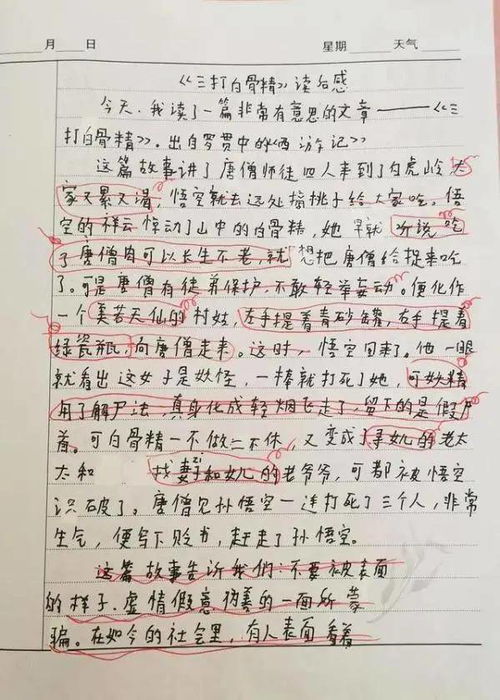 月 日 星期 天气
《三打白骨精》读后感
今天,我读了一篇非常有意思的文章———《三
打白骨精》。出自罗贯中的《西游记》
这篇故事讲了唐僧师徒四人来到了白虎岭,大
家又累又渴,悟空就去远处摘桃子给大家吃。悟
空的祥云惊动了山中的白骨精,她早就听说吃
了唐僧肉可以长生不老,就想把唐僧给捉来吃
了。可是唐僧有徒弟保护,不敢轻举妄动。便化作
一个美若天仙的村姑,左手提着青砂罐,右手提着
绿瓷瓶,向唐僧走来。这时,悟空回来了。他一眼
就看出这女子是妖怪,一棒就打死了她,可妖精
用了解尸法,真身化成轻烟飞走了,留下的是假尸
首。可白骨精一不做二不休,又变成了寻女儿的老太
太和 找妻子和女儿的老爷爷,可都被悟空
识破了。唐僧见孙悟空一连打死了三个人,非常
生气,便写下贬书,赶走了孙悟空。
这篇故事告诉我们:不要被表面
的样子,虚情假意,伪善的一面所蒙
骗。在如今的社会里,有人表面看着